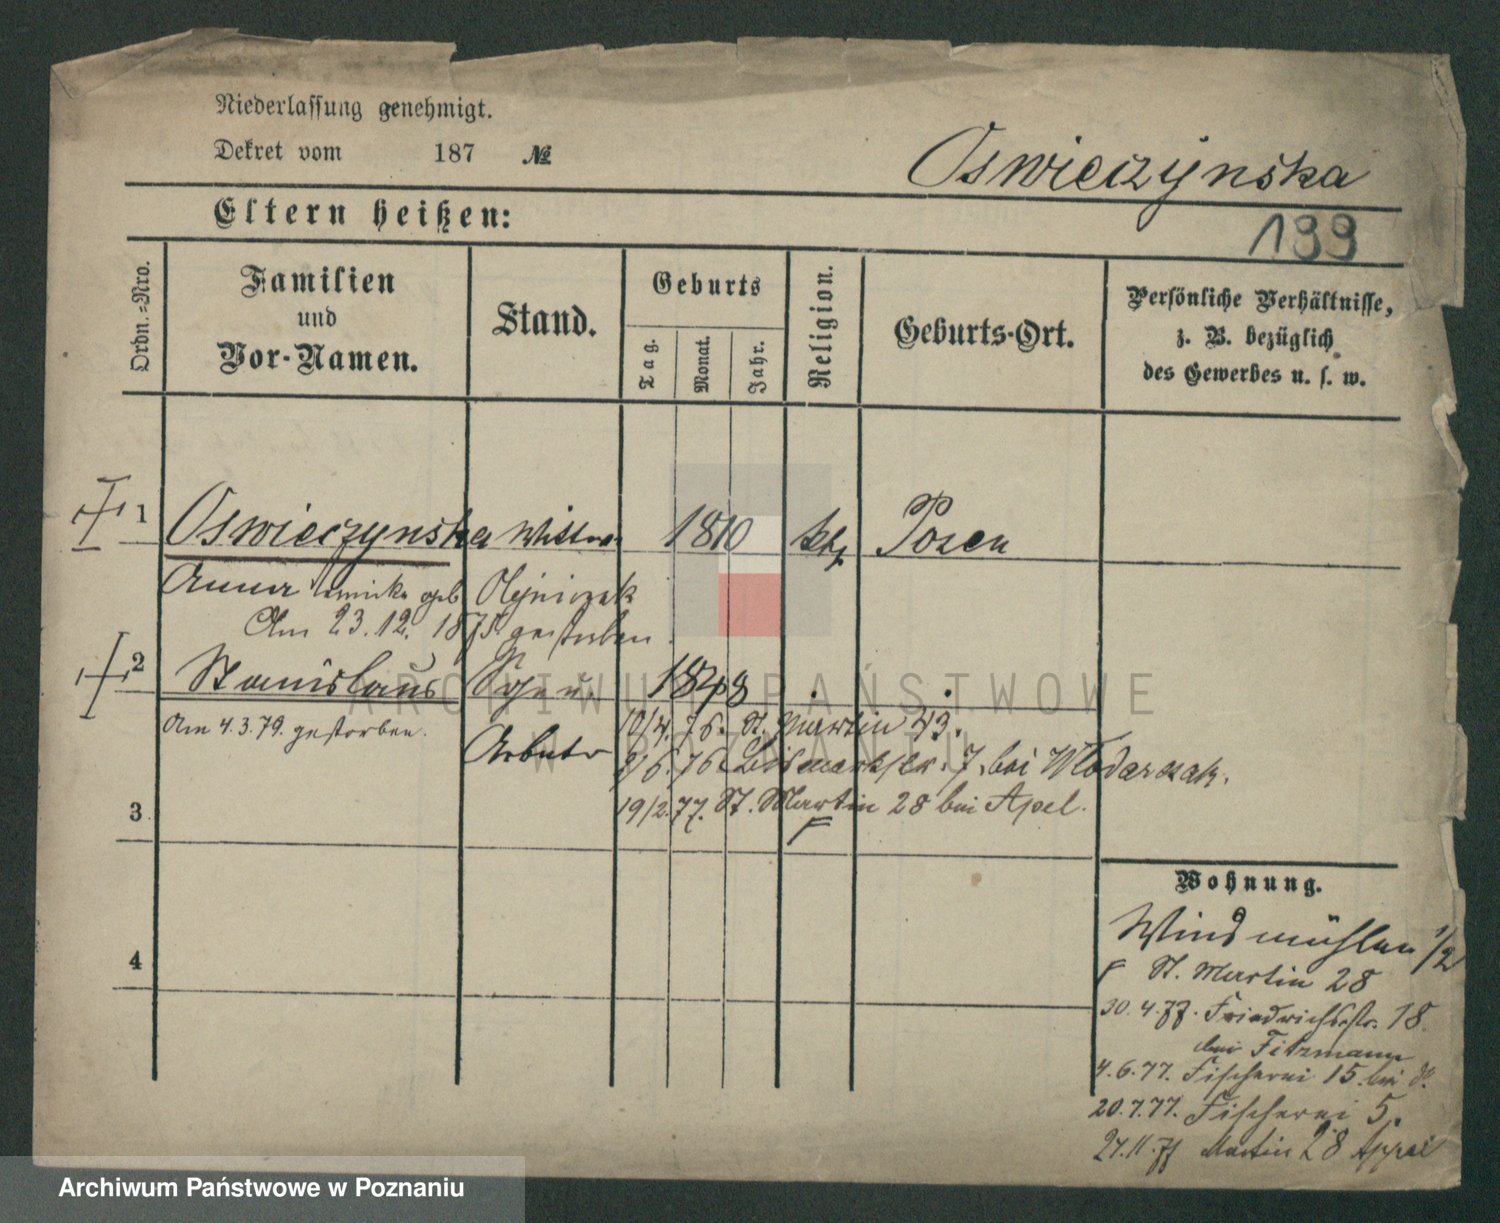 Niederlassung genehmigt.
Dekret vom 187 №
Oswieczynska
Eltern heißen:
199
Ordn.=Nro.
Familien
und
Vor-Namen.
Stand.
Geburts
Tag.
Monat.
Jahr.
Religion.
Geburts-Ort.
Persönliche Verhältnisse,
z. B. bezüglich
des Gewerbes u. s. w.
1 Oswieczynska Wittwe 1810 kth Posen
Anna geb Olejniczak
Am 23.12.1875 gestorben.
2 Stanislaus Sohn 1848 . .
Am 4.3.79. gestorben.
Arbeiter
10/4.76. St. Martin 43.
2/6.76. Bismarkstr. 7. bei Wlodarczak.
3
19/2.77. St. Martin 28 bei Apel.
4
Wohnung.
Windmühlen 1/2
St. Martin 28
30.4.77. Friedrichsstr. 18.
bei Fitzmann
4.6.77. Fischerei 15. bei do.
20.7.77. Fischerei 5.
27.11.77 Martin 28 Appel
ARCHIWUM PAŃSTWOWE
W POZNANIU
Archiwum Państwowe w Poznaniu